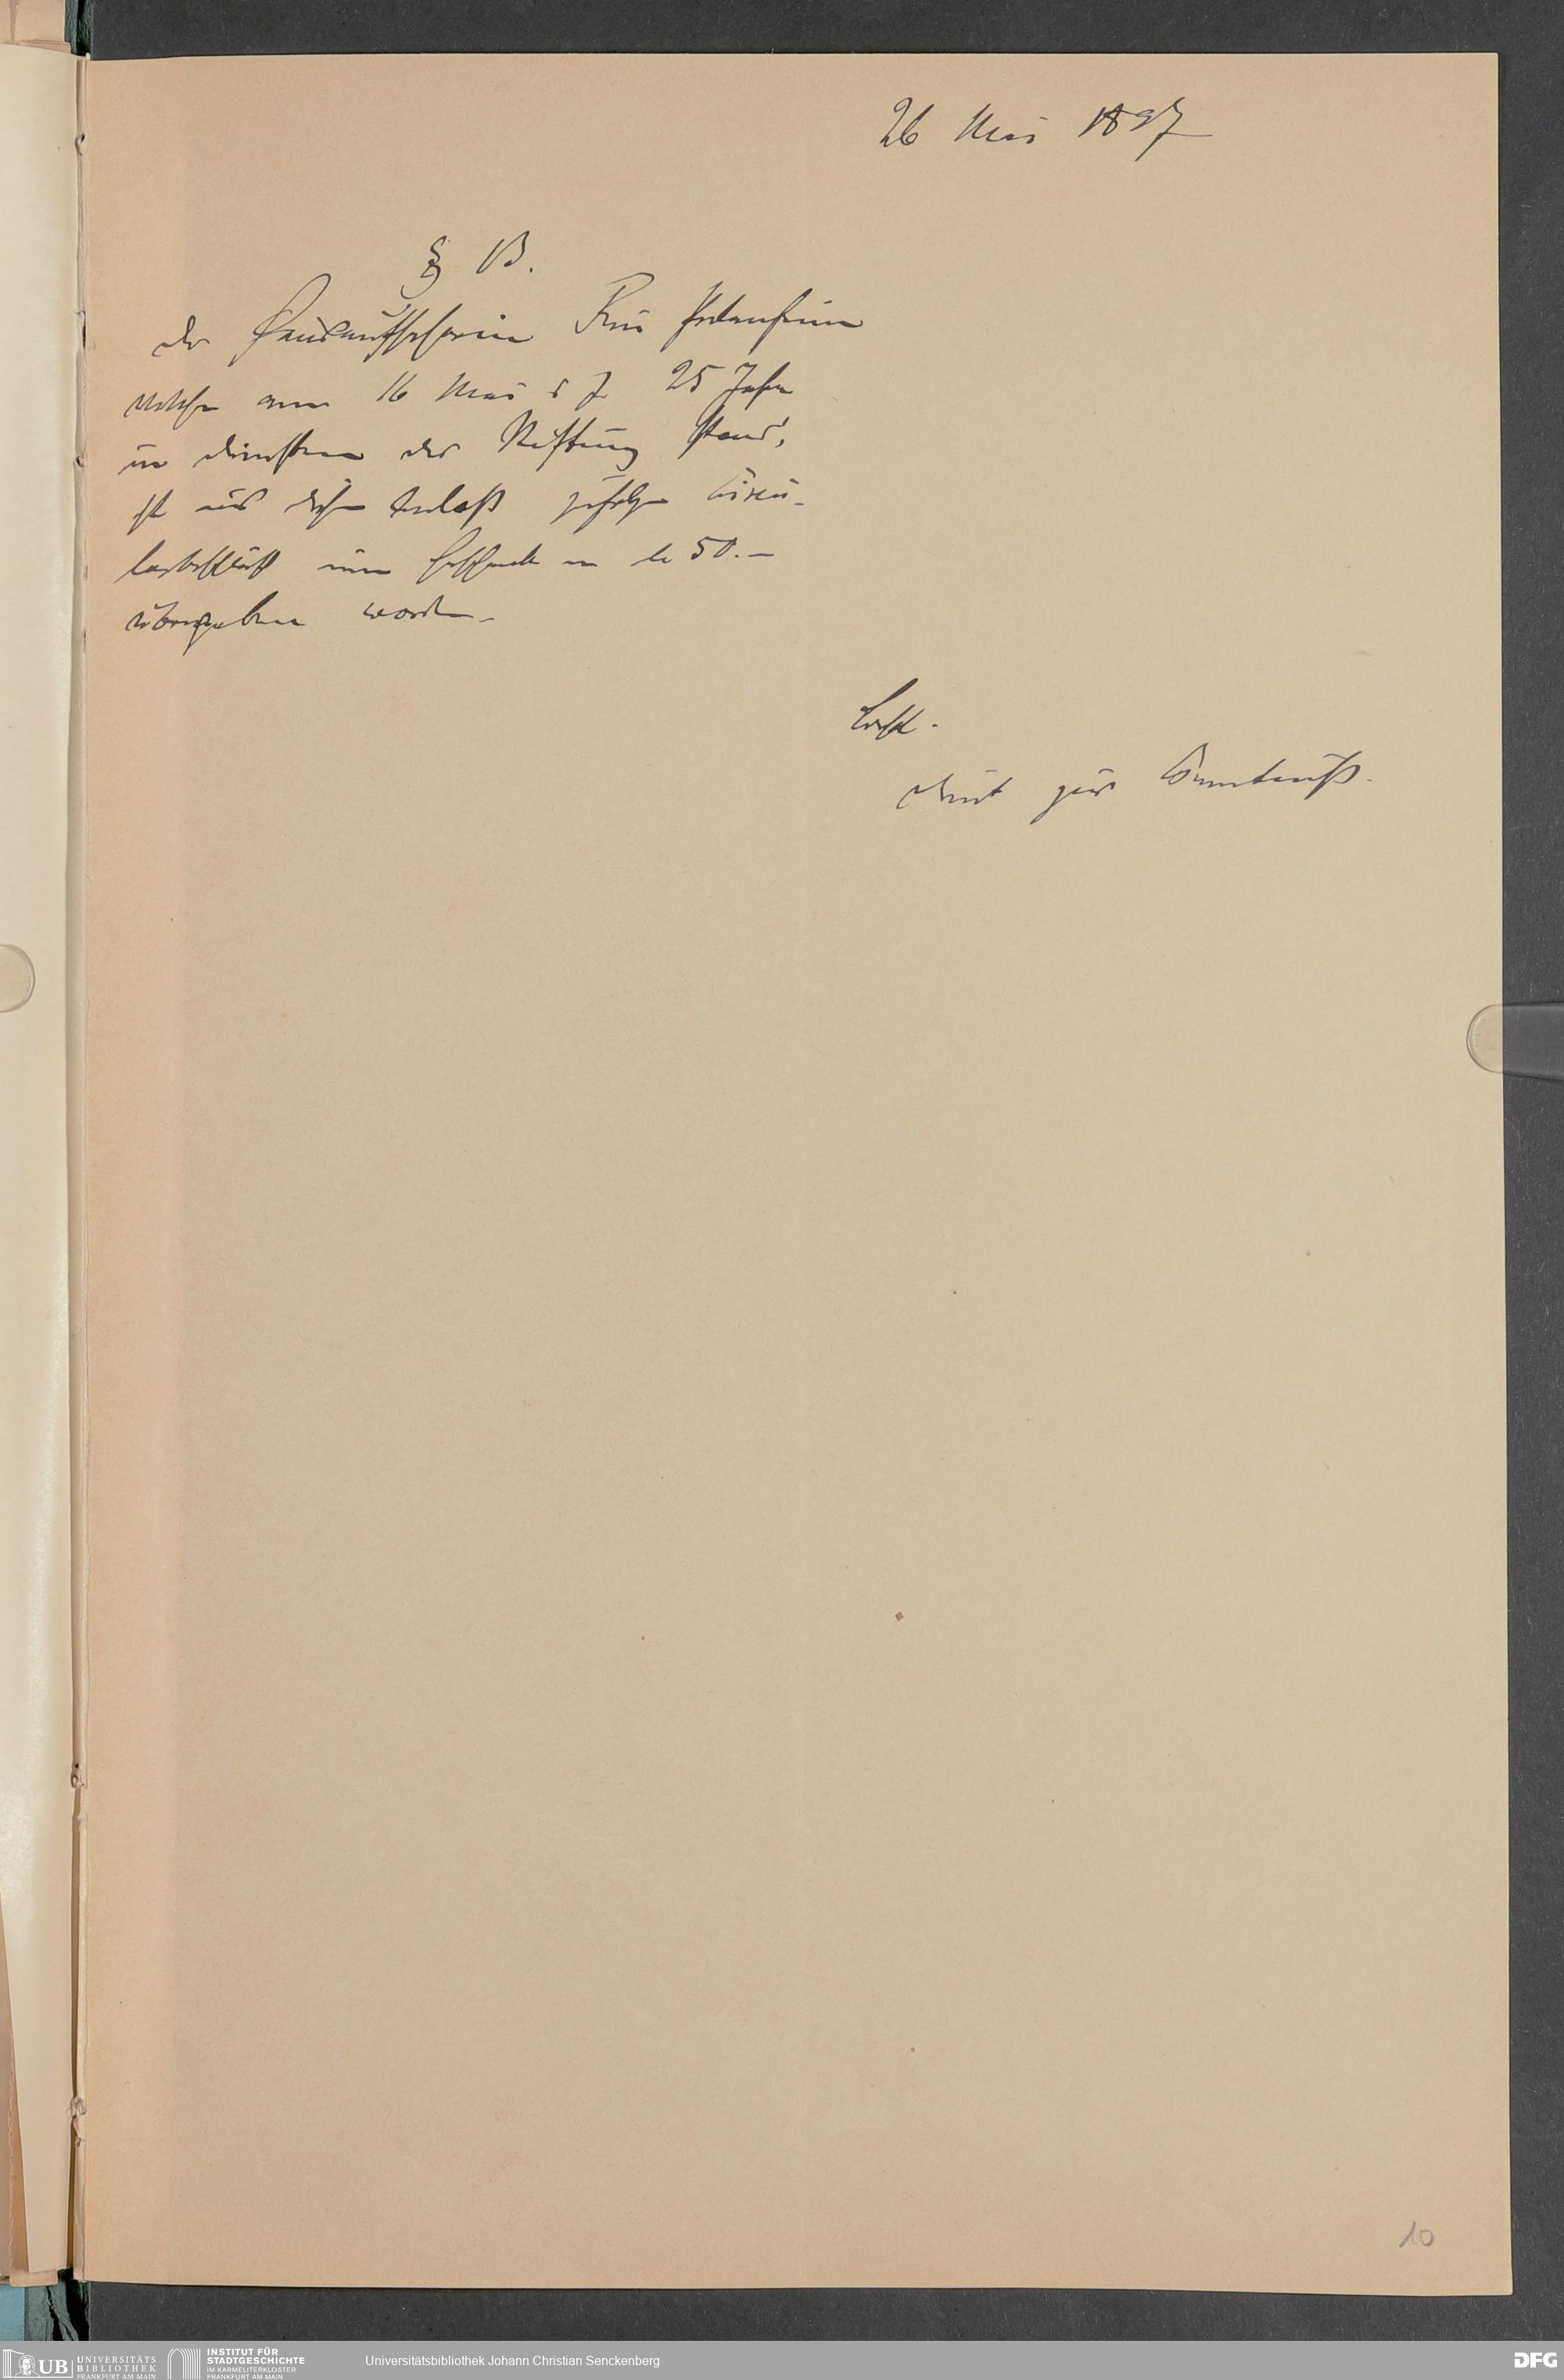 26 Mai 1897
§ 13.
der Hausaufseherin Frau
welche am 16 Mai d J. 25 Jahre
in diensten der Stiftung stand,
ist aus diesem Anlaß zufolge Circu-
larbeschluß ein Geschenk von M 50.–
übergeben worden.
Beschl.
dient zur Kenntniß.
10
UB UNIVERSITÄTS
BIBLIOTHEK
FRANKFURT AM MAIN
INSTITUT FÜR
STADTGESCHICHTE
IM KARMELITERKLOSTER
FRANKFURT AM MAIN
Universitätsbibliothek Johann Christian Senckenberg
DFG